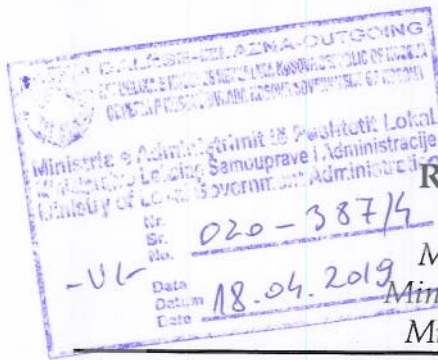 DALËSE-IZLAZNA-OUTGOING
Ministria e Administrimit të Pushtetit Lokal
Ministarstvo Lokalne Samouprave i Administracije
Ministry of Local Government Administration
R
Nr.
Sr.
No.
020-387/4
M
-VL-
Data
Datum
Date
18.04.2019
Min
Mi